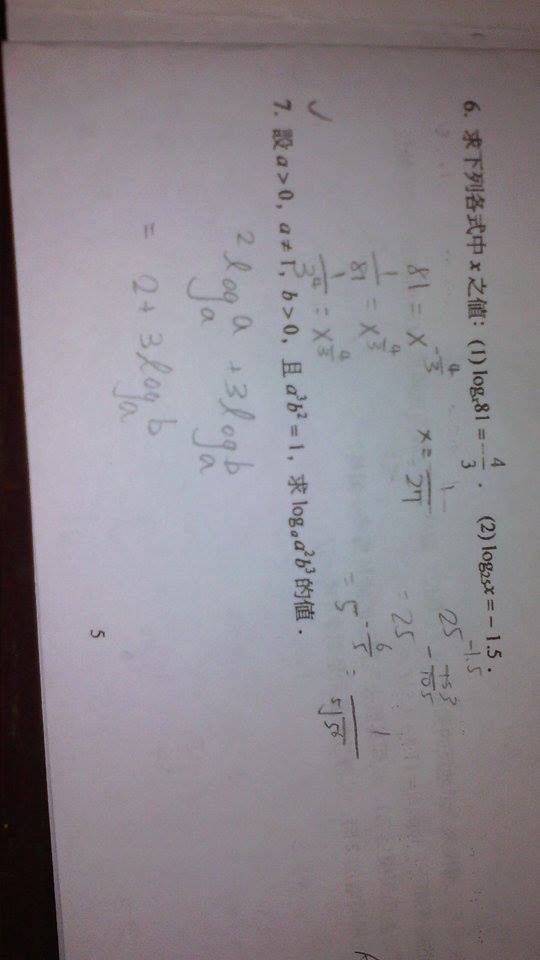 6. 求下列各式中 x 之值：(1) logₓ81 = -4/3．  (2) log₂₅x = -1.5．
81 = x^(-4/3)
x = 1/27
1/81 = x^(4/3)
1/3⁴ = x^(4/3)
25^(-1.5)
= 5^(-6/5) = 1/⁵√5⁶
✓
7. 設 a > 0，a ≠ 1，b > 0，且 a³b² = 1，求 logₐa²b³ 的值．
2 logₐa + 3 logₐb
= 2 + 3 logₐb
5